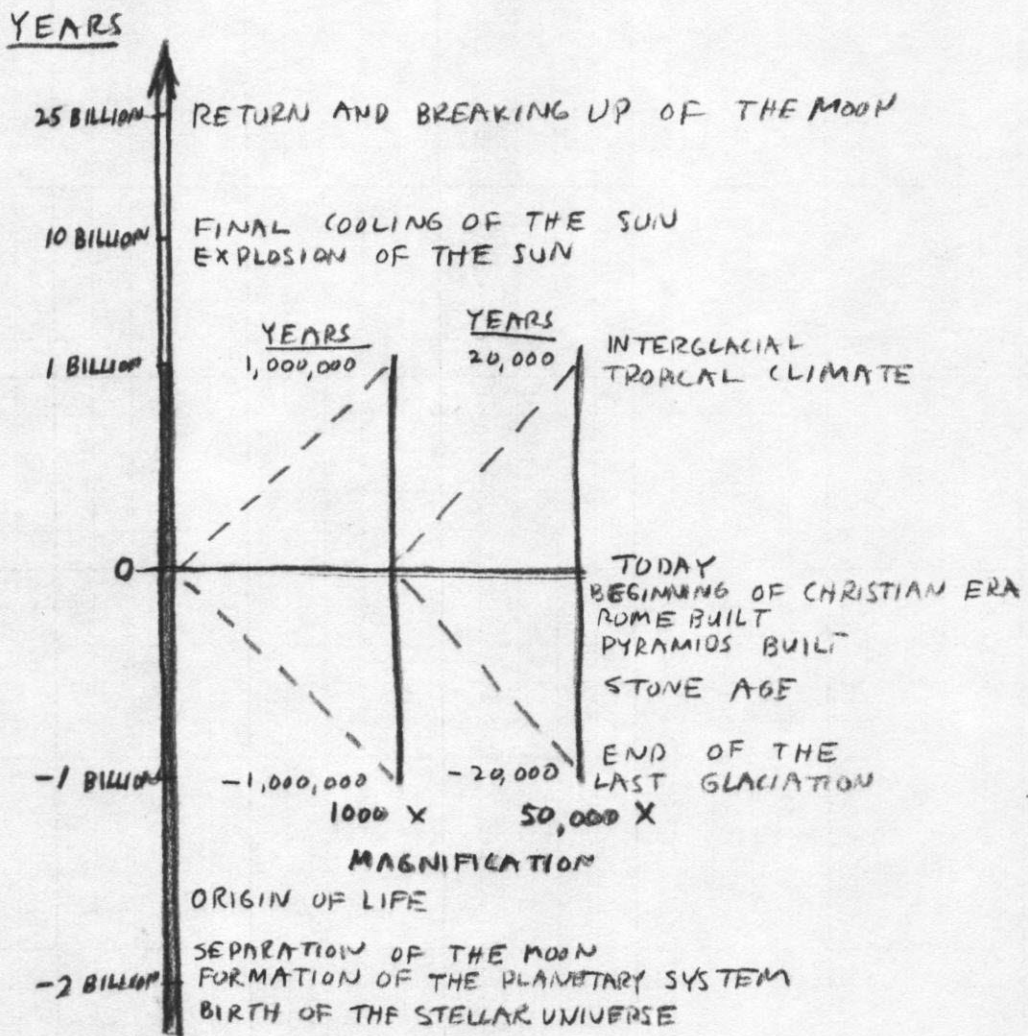 YEARS
25 BILLION RETURN AND BREAKING UP OF THE MOON
10 BILLION FINAL COOLING OF THE SUN
EXPLOSION OF THE SUN
YEARS YEARS
1 BILLION 1,000,000 20,000 INTERGLACIAL
TROPICAL CLIMATE
0 TODAY
BEGINNING OF CHRISTIAN ERA
ROME BUILT
PYRAMIDS BUILT
STONE AGE
END OF THE
-1 BILLION -1,000,000 -20,000 LAST GLACIATION
1000 X 50,000 X
MAGNIFICATION
ORIGIN OF LIFE
SEPARATION OF THE MOON
-2 BILLION FORMATION OF THE PLANETARY SYSTEM
BIRTH OF THE STELLAR UNIVERSE